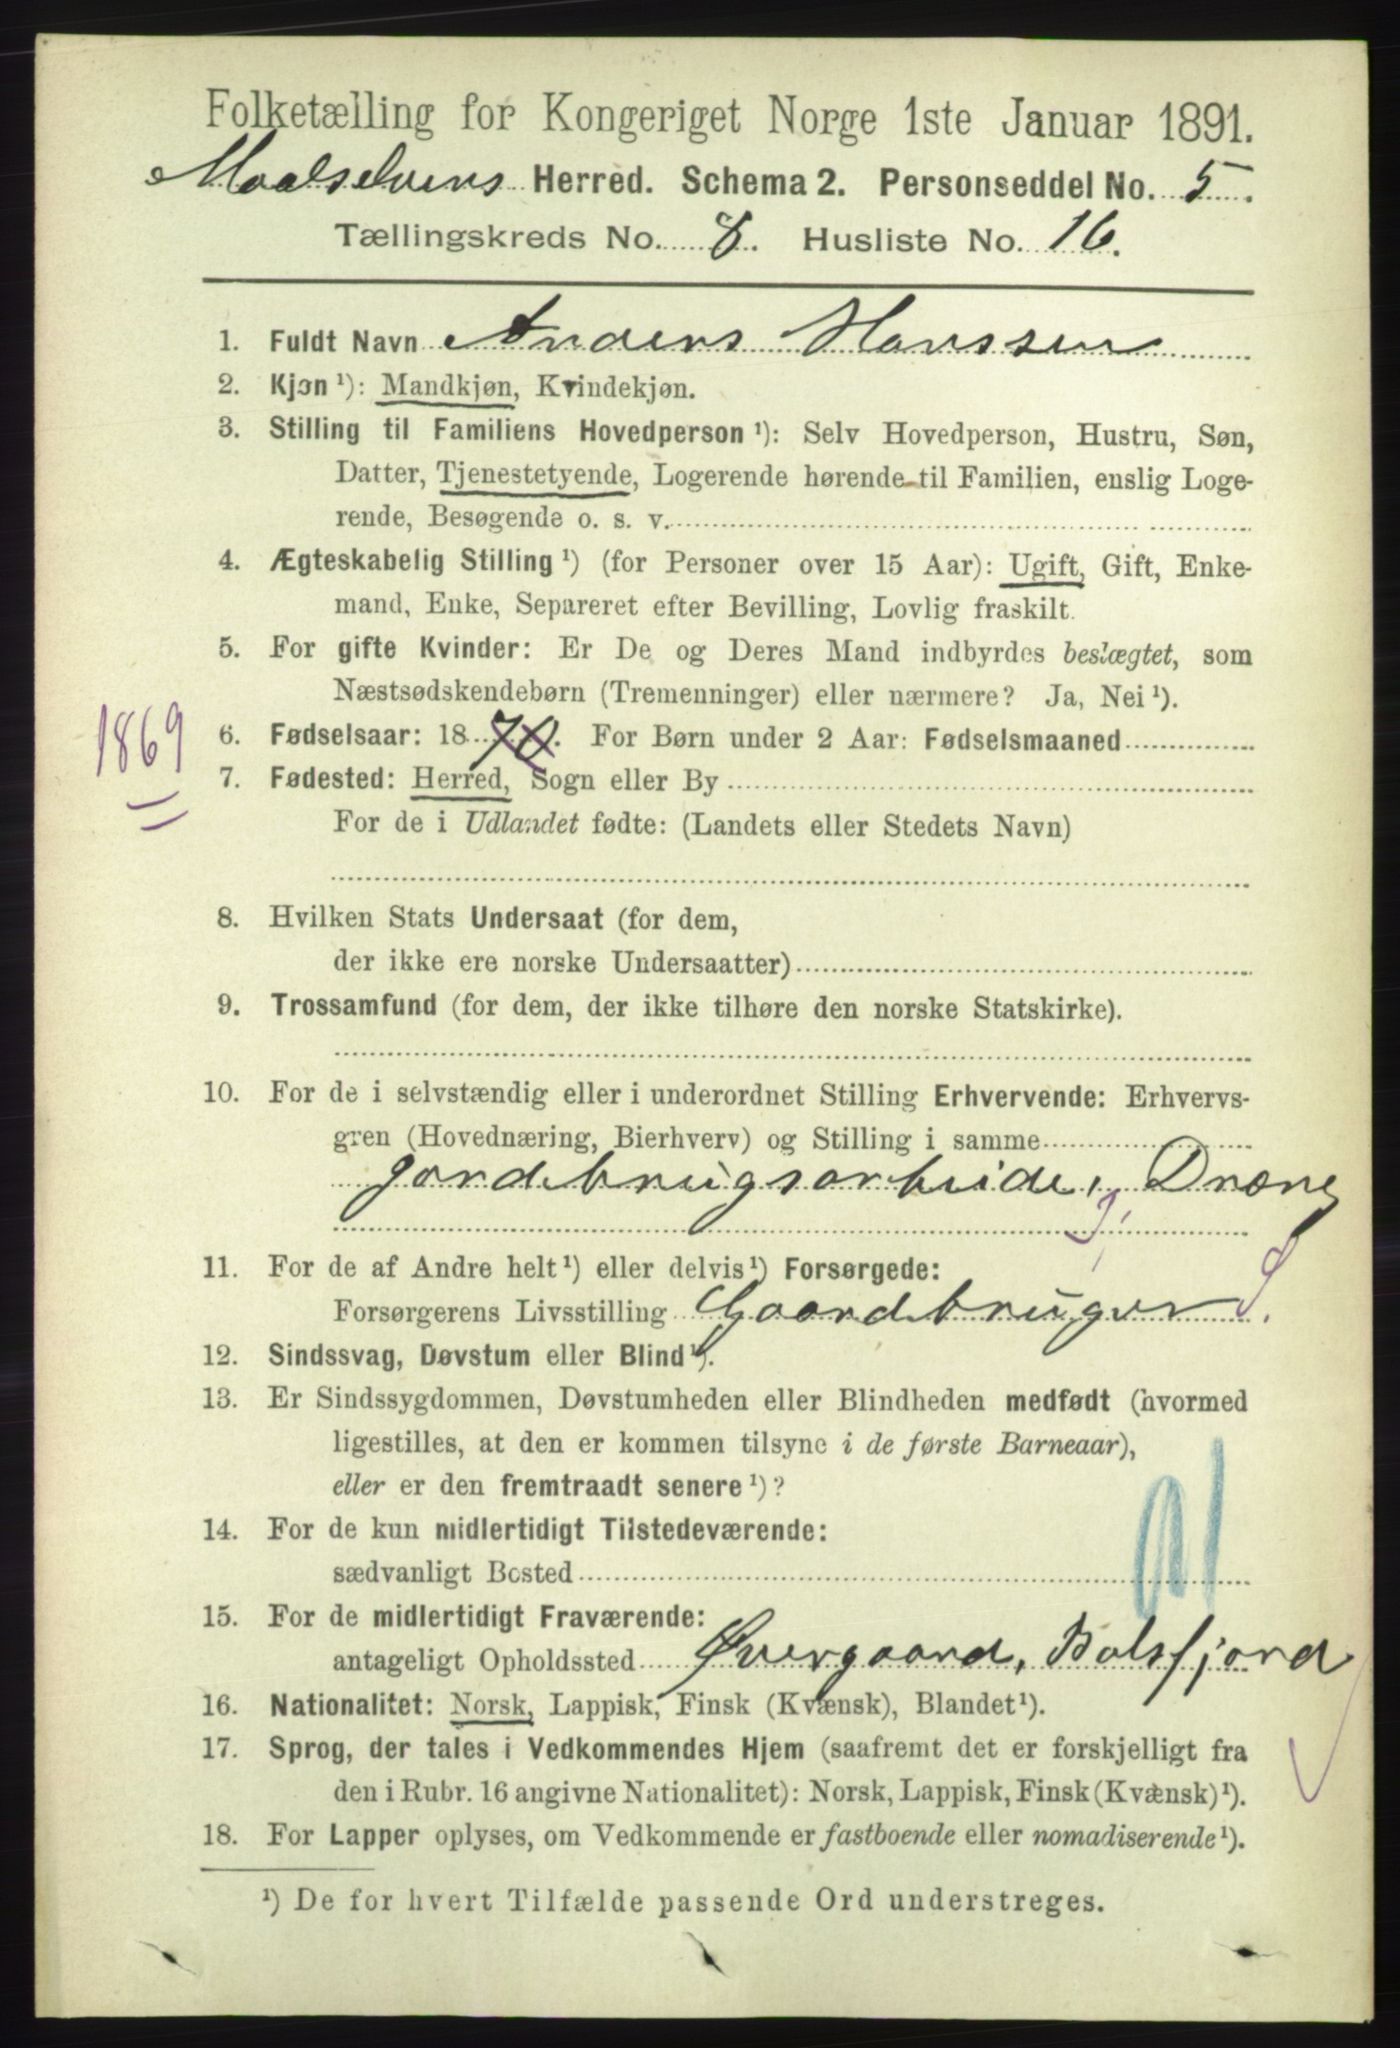 Folketælling for Kongeriget Norge 1ste Januar 1891.
Maalselvens Herred. Schema 2. Personseddel No. 5.
Tællingskreds No. 8. Husliste No. 16.
1. Fuldt Navn Anders Hanssen
2. Kjøn ¹): Mandkjøn, Kvindekjøn.
3. Stilling til Familiens Hovedperson ¹): Selv Hovedperson, Hustru, Søn,
Datter, Tjenestetyende, Logerende hørende til Familien, enslig Loge-
rende, Besøgende o. s. v.
4. Ægteskabelig Stilling ¹) (for Personer over 15 Aar): Ugift, Gift, Enke-
mand, Enke, Separeret efter Bevilling, Lovlig fraskilt.
5. For gifte Kvinder: Er De og Deres Mand indbyrdes beslægtet, som
Næstsødskendebørn (Tremenninger) eller nærmere? Ja, Nei ¹).
1869
6. Fødselsaar: 1870. For Børn under 2 Aar: Fødselsmaaned
7. Fødested: Herred, Sogn eller By
For de i Udlandet fødte: (Landets eller Stedets Navn)
8. Hvilken Stats Undersaat (for dem,
der ikke ere norske Undersaatter)
9. Trossamfund (for dem, der ikke tilhøre den norske Statskirke).
10. For de i selvstændig eller i underordnet Stilling Erhvervende: Erhvervs-
gren (Hovednæring, Bierhverv) og Stilling i samme
Jordbrugsarbeide, Dræng
11. For de af Andre helt ¹) eller delvis ¹) Forsørgede:
Forsørgerens Livsstilling Gaardbruger S.
12. Sindssvag, Døvstum eller Blind ¹).
13. Er Sindssygdommen, Døvstumheden eller Blindheden medfødt (hvormed
ligestilles, at den er kommen tilsyne i de første Barneaar),
eller er den fremtraadt senere ¹)?
14. For de kun midlertidigt Tilstedeværende:
sædvanligt Bosted
15. For de midlertidigt Fraværende:
antageligt Opholdssted Øvergaard, Balsfjord
16. Nationalitet: Norsk, Lappisk, Finsk (Kvænsk), Blandet ¹).
17. Sprog, der tales i Vedkommendes Hjem (saafremt det er forskjelligt fra
den i Rubr. 16 angivne Nationalitet): Norsk, Lappisk, Finsk (Kvænsk) ¹).
18. For Lapper oplyses, om Vedkommende er fastboende eller nomadiserende ¹).
¹) De for hvert Tilfælde passende Ord understreges.